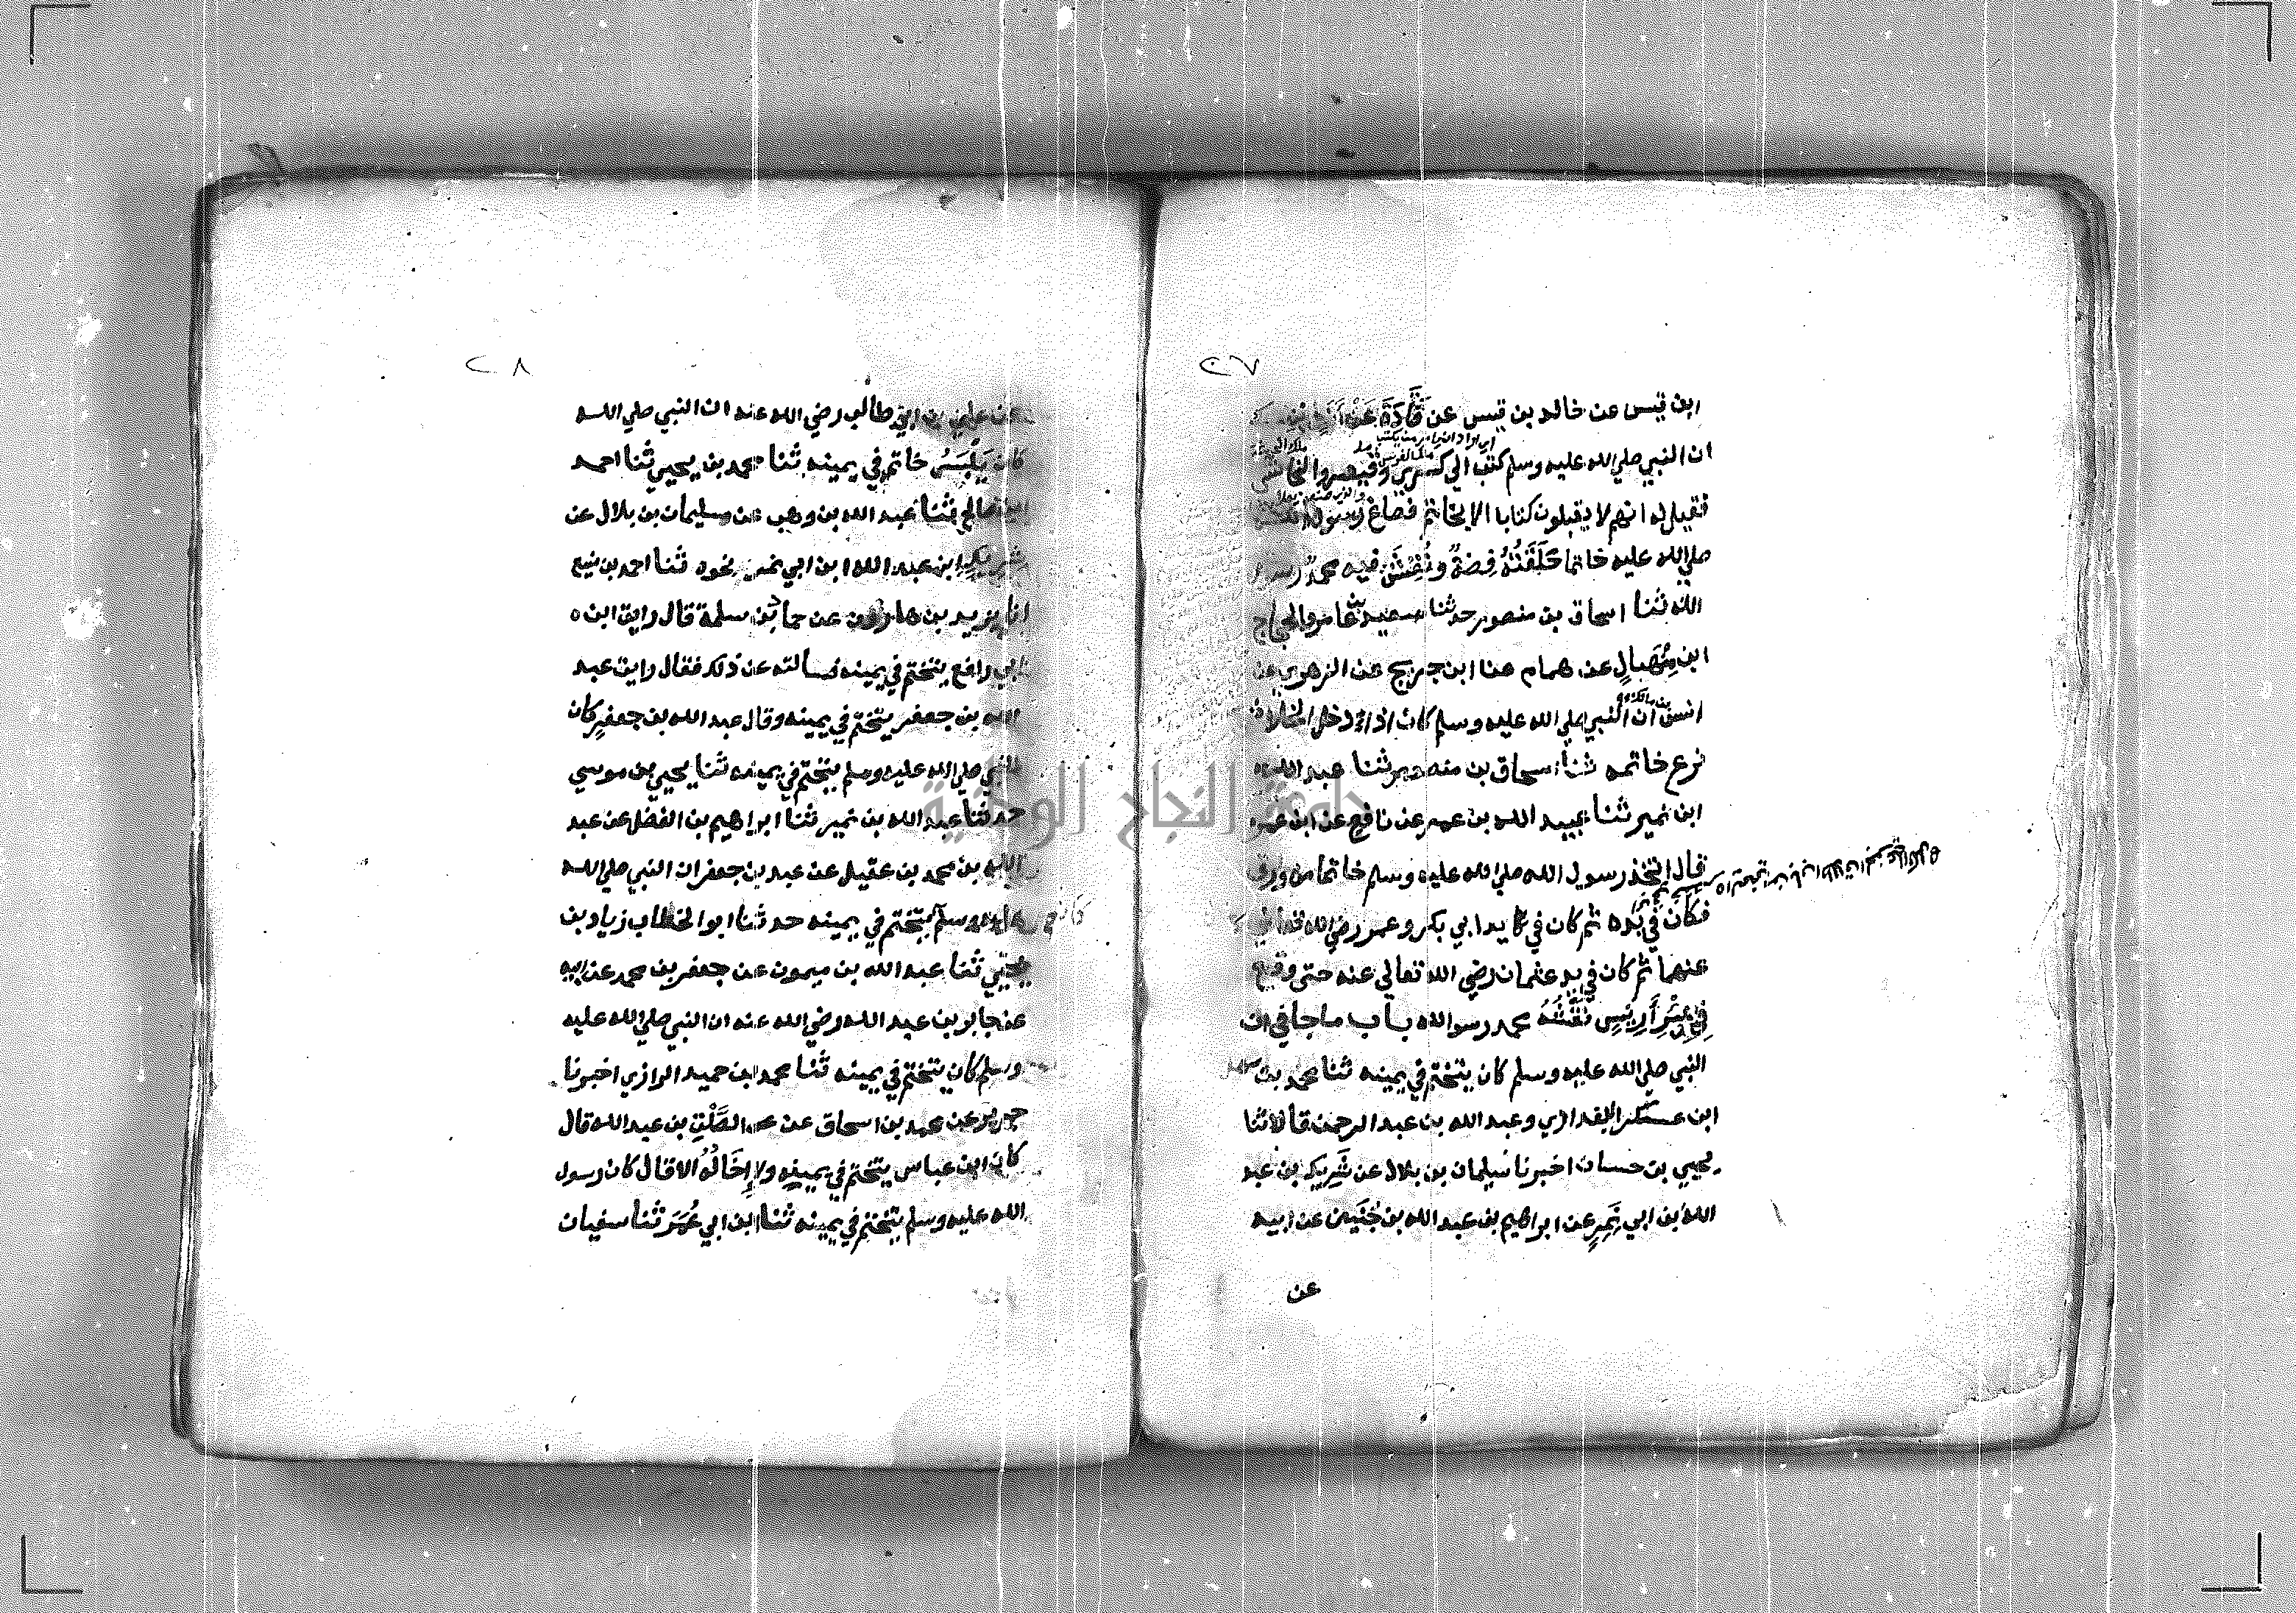 ٢٧
ابن قيس عن خالد بن قيس عن قَتَادَةَ عَنْ
ان النبي صلي الله عليه وسلم كتب الي كسري وقيصر والنجاشي
فقيل له انهم لا يقبلون كتابا الا بخاتم فصاغ رسول الله
صلي الله عليه خاتما حَلْقَتُهُ فِضةٌ ونُقِشَ فيه محمد رسول
الله ثنا اسحاق بن منصور حدثنا سعيد بن عامر والحجاج
ابن مِنْهَالٍ عن همام عنا ابن جريج عن الزهري عن
انس بن مالك ان النبي صلي الله عليه وسلم كان اذا دخل الخلاء
نزع خاتمه ثنا اسحاق بن منصور ثنا عبد الله
ابن نمير ثنا عبيد الله بن عمر عن نافع عن ابن عمر
قال اتخذ رسول الله صلي الله عليه وسلم خاتما من ورق
فكان في يده ثم كان في يد ابي بكر وعمر رضي الله تعالي
عنهما ثم كان في يد عثمان رضي الله تعالي عنه حتي وقع
في بِئْرِ أَرِيسٍ نَقْشُهُ محمد رسوالله باب ما جا في ان
النبي صلي الله عليه وسلم كان يتختم في يمينه ثنا محمد بن سهل
ابن عسكر البغدادي وعبد الله بن عبد الرحمن قالا ثنا
يحيي بن حسان اخبرنا سليمان بن بلال عن شَرِيكِ بن عبد
الله بن ابي نَمِرٍ عن ابراهيم بن عبد الله بن حُنَيْنِ عن ابيه
عن
٢٨
عن علي بن ابي طالب رضي الله عنه ان النبي صلي الله
كان يَلْبَسُ خاتم في يمينه ثنا محمد بن يحيي ثنا احمد
ابن صالح ثنا عبد الله بن وهب عن سليمان بن بلال عن
شريك ابن عبد الله ابن ابي نمر نحوه ثنا احمد بن منيع
انا يزيد بن هارون عن حماد بن سلمة قال رايت ابن
ابي رافع يتختم في يمينه فسالته عن ذلك فقال رايت عبد
الله بن جعفر يتختم في يمينه وقال عبد الله بن جعفرٍ كان
النبي صلي الله عليه وسلم يتختم في يمينه ثنا يحيي بن موسي
حدثنا عبد الله بن نمير ثنا ابراهيم بن الفضل عن عبد
الله بن محمد بن عقيل عن عبد بن جعفر ان النبي صلي الله
عليه وسلم كان يتختم في يمينه حدثنا ابو الخطاب زياد بن
يحيي ثنا عبد الله بن ميمون عن جعفر بن محمد عن ابيه
عن جابر بن عبد الله رضي الله عنه ان النبي صلي الله عليه
وسلم كان يتختم في يمينه ثنا محمد بن حميد الرازي اخبرنا
جرير عن محمد بن اسحاق عن الصَّلْتِ بن عبد الله قال
كان ابن عباس يتختم في يمينه ولا إِخَالُهُ الا قال كان رسول
الله عليه وسلم يتختم في يمينه ثنا ابن ابي عُمَرَ ثنا سفيان
جامعة النجاح الوطنية